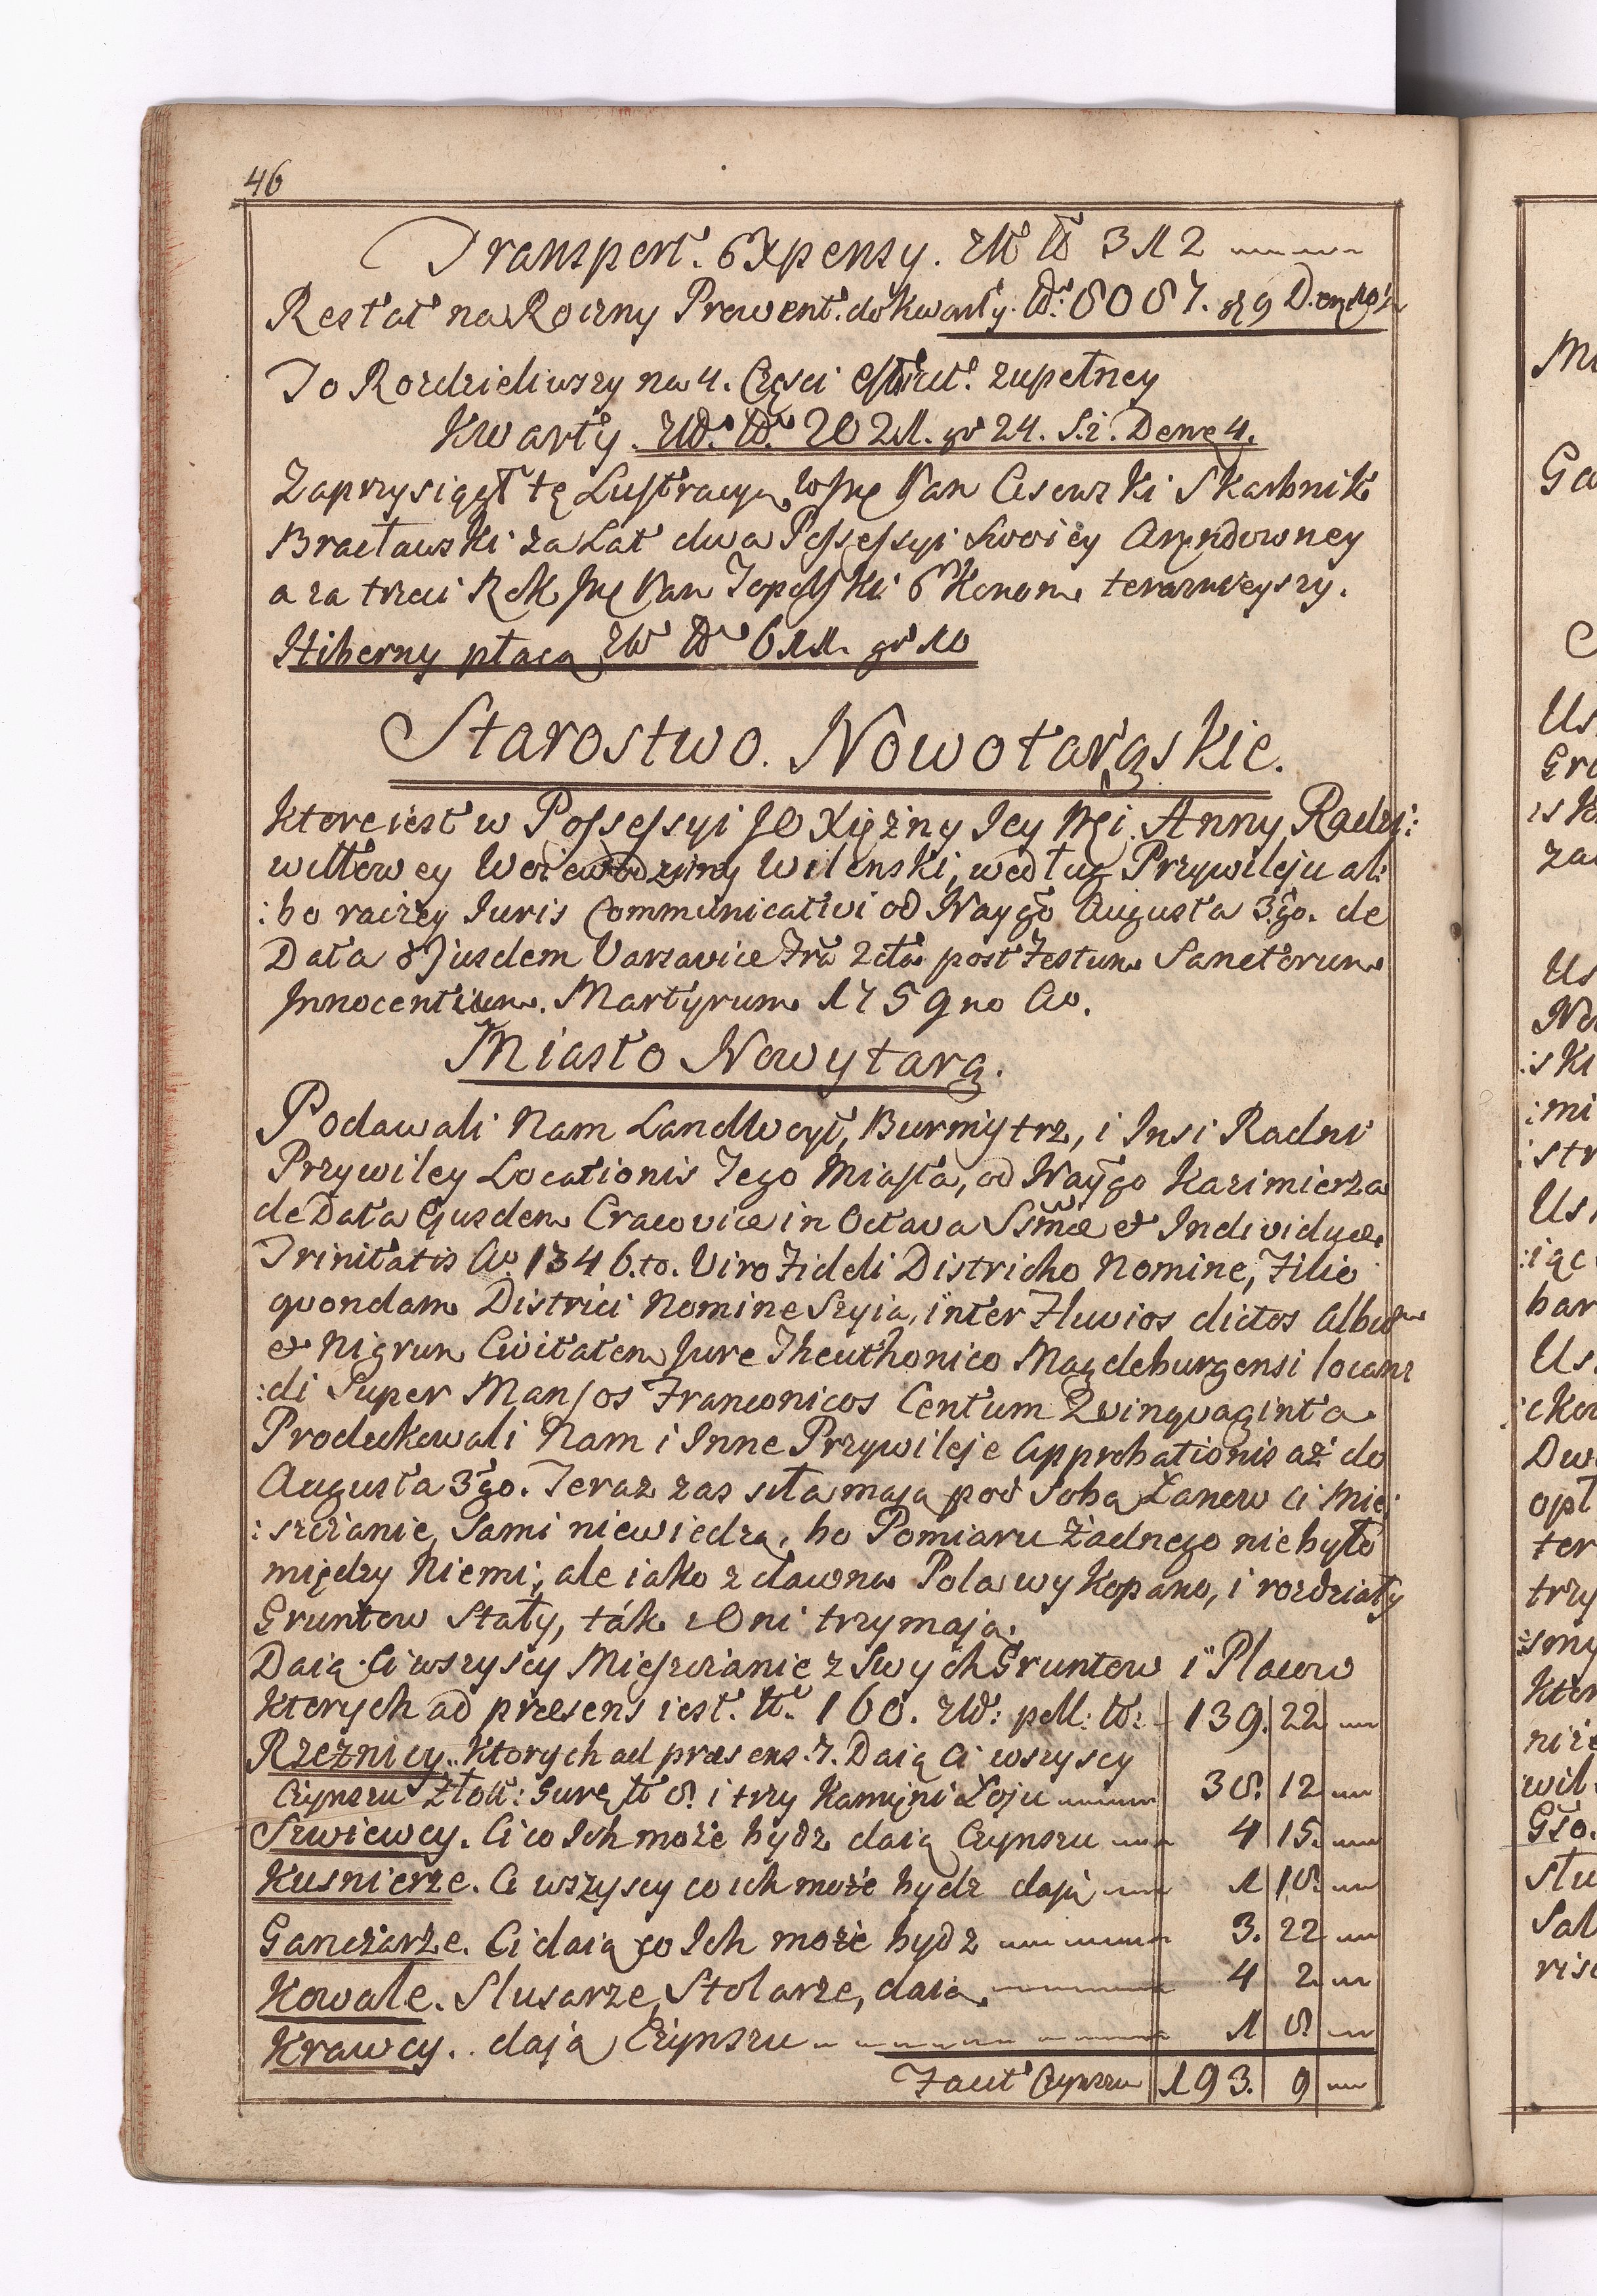 46
Transport. Expensy. Złł tł 312
Restat na Roczny Prowent. do Kwarty. tł: 8087. gr 9 D.
To Rozdzieliwszy na 4. Częsci zupełney
Kwarty. Złł. tł. 2021. gr 24. S. 2. Dene 4.
Zaprzysiągł tę Lustracyą WJmć Pan Skarbnik
Bracławski za Lat dwa Possessyi Swoiey Arendowney
a za trzeci Rok Jmć Pan Ekonom terazniejszy.
Hiberny płacą Złł tł 611. gr 10
Starostwo. Nowotargskie.
Ktore iest w Possessyi JO Xiężny Jey Mći Anny Radzi:
wiłłowey Woiewodziny Wilenski, według Przywileju al:
:bo raczey Iuris Communicativi od Naygo Augusta 3go. de
Data Ejusdem Varsaviæ Fra 2da post Festum Sanctorum
Innocentium. Martyrum 1759no Ao.
Miasto Nowytarg.
Podawali Nam Landwoyt, Burmystrz, i Insi Radni
Przywiley Locationis Tego Miasta, od Naygo Kazimierza
de Data Ejusdem Cracoviæ in Octava SSmæ et Individuæ
Trinitatis Ao. 1346.to. Viro Fideli Districho Nomine, Filio
quondam Districi Nomine Szyia, inter Fluvios dictos Album
et Nigrum Civitatem Jure Theuthonico Magdeburgensi locan:
:di Super Mansos Franconicos Centum Quinquaginta
Produkowali Nam i Inne Przywileje Approbationis aż do
Augusta 3go. Teraz zas siła mają pod Sobą Łanow Ci Mie:
:szczanie, Sami niewiedzą, bo Pomiaru Żadnego niebyło
między Niemi, ale iako zdawna Pola wykopano, i rozdziały
Gruntow Stały, ták i Oni trzymają.
Daią Ci wszyscy Mieszczanie z Swych Gruntow i Placow
Ktorych ad præsens iest. Nr. 160. Złł: poll: tł: 139. 22
Rzeznicy. Ktorych ad præsens. 7. Daią Ci wszyscy
Czynszu Złott: Gurę tł 8. i trzy Kamięni Łoju 38. 12
Szwiewcy. Ci co Ich może bydz daią Czynszu 4 15.
Kusnierze. Ci wszyscy co ich może bydz dają 1 18.
Ganczarze. Ci daią co Ich może bydz 3. 22
Kowale. Slusarze, Stolarze, daią 4 2
Krawcy. dają Czynszu 1 8
Facit Czynszu 193. 9